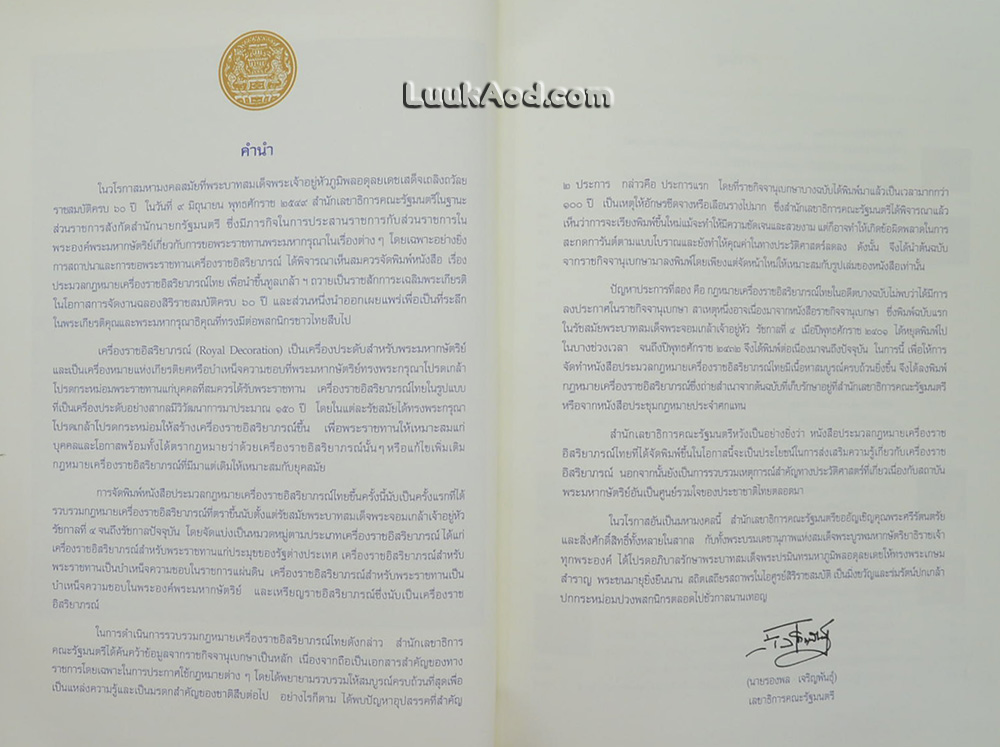 LuukAod.com
คำนำ
ในวโรกาสมหามงคลสมัยที่พระบาทสมเด็จพระเจ้าอยู่หัวภูมิพลอดุลยเดชเสด็จเถลิงถวัลย
ราชสมบัติครบ ๖๐ ปี ในวันที่ ๙ มิถุนายน พุทธศักราช ๒๕๔๙ สำนักเลขาธิการคณะรัฐมนตรีในฐานะ
ส่วนราชการสังกัดสำนักนายกรัฐมนตรี ซึ่งมีภารกิจในการประสานราชการกับส่วนราชการใน
พระองค์พระมหากษัตริย์เกี่ยวกับการขอพระราชทานพระมหากรุณาในเรื่องต่าง ๆ โดยเฉพาะอย่างยิ่ง
การสถาปนาและการขอพระราชทานเครื่องราชอิสริยาภรณ์ ได้พิจารณาเห็นสมควรจัดพิมพ์หนังสือ เรื่อง
ประมวลกฎหมายเครื่องราชอิสริยาภรณ์ไทย เพื่อนำขึ้นทูลเกล้า ฯ ถวายเป็นราชสักการะเฉลิมพระเกียรติ
ในโอกาสการจัดงานฉลองสิริราชสมบัติครบ ๖๐ ปี และส่วนหนึ่งนำออกเผยแพร่เพื่อเป็นที่ระลึก
ในพระเกียรติคุณและพระมหากรุณาธิคุณที่ทรงมีต่อพสกนิกรชาวไทยสืบไป
เครื่องราชอิสริยาภรณ์ (Royal Decoration) เป็นเครื่องประดับสำหรับพระมหากษัตริย์
และเป็นเครื่องหมายแห่งเกียรติยศหรือบำเหน็จความชอบที่พระมหากษัตริย์ทรงพระกรุณาโปรดเกล้า
โปรดกระหม่อมพระราชทานแก่บุคคลที่สมควรได้รับพระราชทาน เครื่องราชอิสริยาภรณ์ไทยในรูปแบบ
ที่เป็นเครื่องประดับอย่างสากลมีวิวัฒนาการมาประมาณ ๑๕๐ ปี โดยในแต่ละรัชสมัยได้ทรงพระกรุณา
โปรดเกล้าโปรดกระหม่อมให้สร้างเครื่องราชอิสริยาภรณ์ขึ้น เพื่อพระราชทานให้เหมาะสมแก่
บุคคลและโอกาสพร้อมทั้งได้ตรากฎหมายว่าด้วยเครื่องราชอิสริยาภรณ์นั้นๆ หรือแก้ไขเพิ่มเติม
กฎหมายเครื่องราชอิสริยาภรณ์ที่มีมาแต่เดิมให้เหมาะสมกับยุคสมัย
การจัดพิมพ์หนังสือประมวลกฎหมายเครื่องราชอิสริยาภรณ์ไทยขึ้นครั้งนี้นับเป็นครั้งแรกที่ได้
รวบรวมกฎหมายเครื่องราชอิสริยาภรณ์ที่ตราขึ้นนับตั้งแต่รัชสมัยพระบาทสมเด็จพระจอมเกล้าเจ้าอยู่หัว
รัชกาลที่ ๔ จนถึงรัชกาลปัจจุบัน โดยจัดแบ่งเป็นหมวดหมู่ตามประเภทเครื่องราชอิสริยาภรณ์ ได้แก่
เครื่องราชอิสริยาภรณ์สำหรับพระราชทานแก่ประมุขของรัฐต่างประเทศ เครื่องราชอิสริยาภรณ์สำหรับ
พระราชทานเป็นบำเหน็จความชอบในราชการแผ่นดิน เครื่องราชอิสริยาภรณ์สำหรับพระราชทานเป็น
บำเหน็จความชอบในพระองค์พระมหากษัตริย์ และเหรียญราชอิสริยาภรณ์ซึ่งนับเป็นเครื่องราช
อิสริยาภรณ์
ในการดำเนินการรวบรวมกฎหมายเครื่องราชอิสริยาภรณ์ไทยดังกล่าว สำนักเลขาธิการ
คณะรัฐมนตรีได้ค้นคว้าข้อมูลจากราชกิจจานุเบกษาเป็นหลัก เนื่องจากถือเป็นเอกสารสำคัญของทาง
ราชการโดยเฉพาะในการประกาศใช้กฎหมายต่าง ๆ โดยได้พยายามรวบรวมให้สมบูรณ์ครบถ้วนที่สุดเพื่อ
เป็นแหล่งความรู้และเป็นมรดกสำคัญของชาติสืบต่อไป อย่างไรก็ตาม ได้พบปัญหาอุปสรรคที่สำคัญ
๒ ประการ กล่าวคือ ประการแรก โดยที่ราชกิจจานุเบกษาบางฉบับได้พิมพ์มาแล้วเป็นเวลามากกว่า
๑๐๐ ปี เป็นเหตุให้อักษรซีดจางหรือเลือนรางไปมาก ซึ่งสำนักเลขาธิการคณะรัฐมนตรีได้พิจารณาแล้ว
เห็นว่าการจะเรียงพิมพ์ขึ้นใหม่แม้จะทำให้มีความชัดเจนและสวยงาม แต่ก็อาจทำให้เกิดข้อผิดพลาดในการ
สะกดการันต์ตามแบบโบราณและยังทำให้คุณค่าในทางประวัติศาสตร์ลดลง ดังนั้น จึงได้นำต้นฉบับ
จากราชกิจจานุเบกษามาลงพิมพ์โดยเพียงแต่จัดหน้าใหม่ให้เหมาะสมกับรูปเล่มของหนังสือเท่านั้น
ปัญหาประการที่สอง คือ กฎหมายเครื่องราชอิสริยาภรณ์ไทยในอดีตบางฉบับไม่พบว่าได้มีการ
ลงประกาศในราชกิจจานุเบกษา สาเหตุหนึ่งอาจเนื่องมาจากหนังสือราชกิจจานุเบกษา ซึ่งพิมพ์ฉบับแรก
ในรัชสมัยพระบาทสมเด็จพระจอมเกล้าเจ้าอยู่หัว รัชกาลที่ ๔ เมื่อปีพุทธศักราช ๒๔๐๑ ได้หยุดพิมพ์ไป
ในบางช่วงเวลา จนถึงปีพุทธศักราช ๒๔๓๒ จึงได้พิมพ์ต่อเนื่องมาจนถึงปัจจุบัน ในการนี้ เพื่อให้การ
จัดทำหนังสือประมวลกฎหมายเครื่องราชอิสริยาภรณ์ไทยมีเนื้อหาสมบูรณ์ครบถ้วนยิ่งขึ้น จึงได้ลงพิมพ์
กฎหมายเครื่องราชอิสริยาภรณ์ซึ่งถ่ายสำเนาจากต้นฉบับที่เก็บรักษาอยู่ที่สำนักเลขาธิการคณะรัฐมนตรี
หรือจากหนังสือประชุมกฎหมายประจำศกแทน
สำนักเลขาธิการคณะรัฐมนตรีหวังเป็นอย่างยิ่งว่า หนังสือประมวลกฎหมายเครื่องราช
อิสริยาภรณ์ไทยที่ได้จัดพิมพ์ขึ้นในโอกาสนี้จะเป็นประโยชน์ในการส่งเสริมความรู้เกี่ยวกับเครื่องราช
อิสริยาภรณ์ นอกจากนั้นยังเป็นการรวบรวมเหตุการณ์สำคัญทางประวัติศาสตร์ที่เกี่ยวเนื่องกับสถาบัน
พระมหากษัตริย์อันเป็นศูนย์รวมใจของประชาชาติไทยตลอดมา
ในวโรกาสอันเป็นมหามงคลนี้ สำนักเลขาธิการคณะรัฐมนตรีขออัญเชิญคุณพระศรีรัตนตรัย
และสิ่งศักดิ์สิทธิ์ทั้งหลายในสากล กับทั้งพระบรมเดชานุภาพแห่งสมเด็จพระบูรพมหากษัตริยาธิราชเจ้า
ทุกพระองค์ ได้โปรดอภิบาลรักษาพระบาทสมเด็จพระปรมินทรมหาภูมิพลอดุลยเดชให้ทรงพระเกษม
สำราญ พระชนมายุยิ่งยืนนาน สถิตเสถียรสถาพรในไอศูรย์สิริราชสมบัติ เป็นมิ่งขวัญและร่มรัตน์ปกเกล้า
ปกกระหม่อมปวงพสกนิกรตลอดไปชั่วกาลนานเทอญ
(นายรองพล เจริญพันธุ์)
เลขาธิการคณะรัฐมนตรี